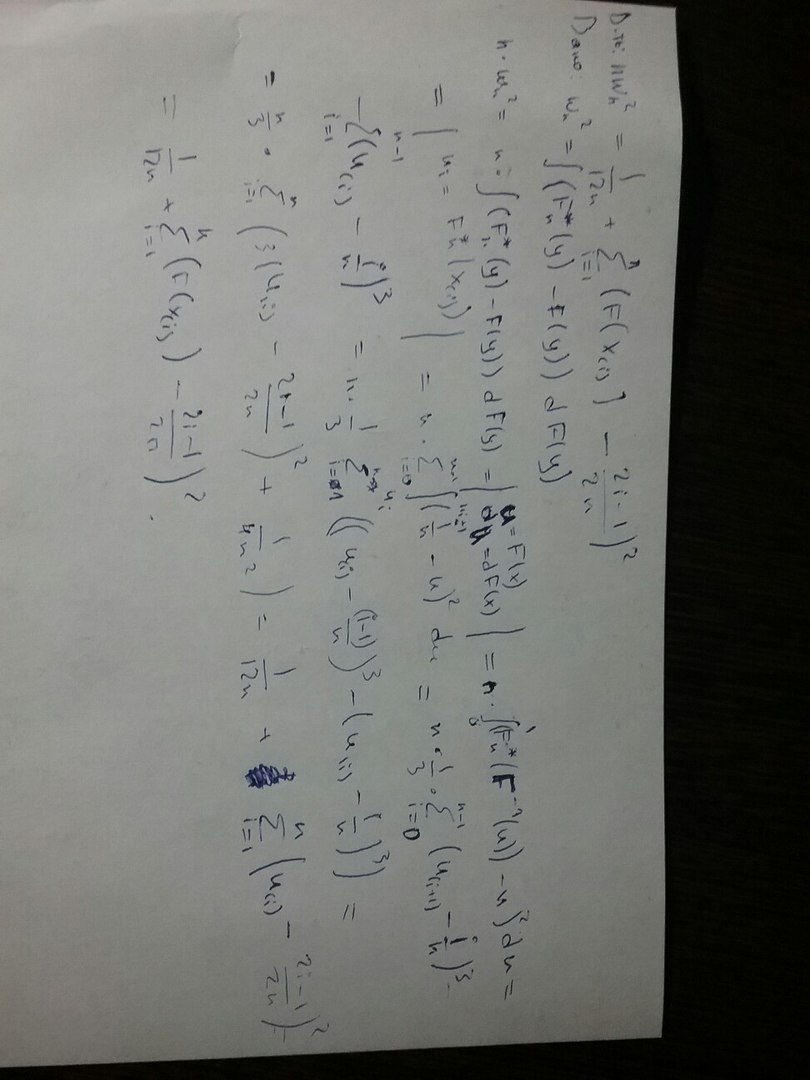 Д-ть: nω_n² = 1/(12n) + Σ_{i=1}^{n} (F(x_(i)) − (2i−1)/(2n))²
Дано: ω_n² = ∫(F_n*(y) − F(y)) dF(y)
n·ω_n² = n·∫(F_n*(y) − F(y)) dF(y) = | u = F(x) du = dF(x) | = n·∫_0^1 (F_n*(F^{-1}(u)) − u)² du =
= | u_i = F_n*(x_(i)) | = n·Σ_{i=0}^{n-1} ∫^{u_{i+1}} (i/n − u)² du = n·1/3·Σ_{i=0}^{n-1} (u_(i+1) − i/n)³ −
− Σ_{i=1}^{n-1} (u_(i) − i/n)³ = n·1/3 Σ_{i=1} ((u_(i) − (i−1)/n)³ − (u_(i) − i/n)³) =
= n/3 · Σ_{i=1}^{n} (3(u_(i) − (2i−1)/(2n))² + 1/(4n²)) = 1/(12n) + Σ_{i=1}^{n} (u_(i) − (2i−1)/(2n))² =
= 1/(12n) + Σ_{i=1}^{n} (F(x_(i)) − (2i−1)/(2n))².